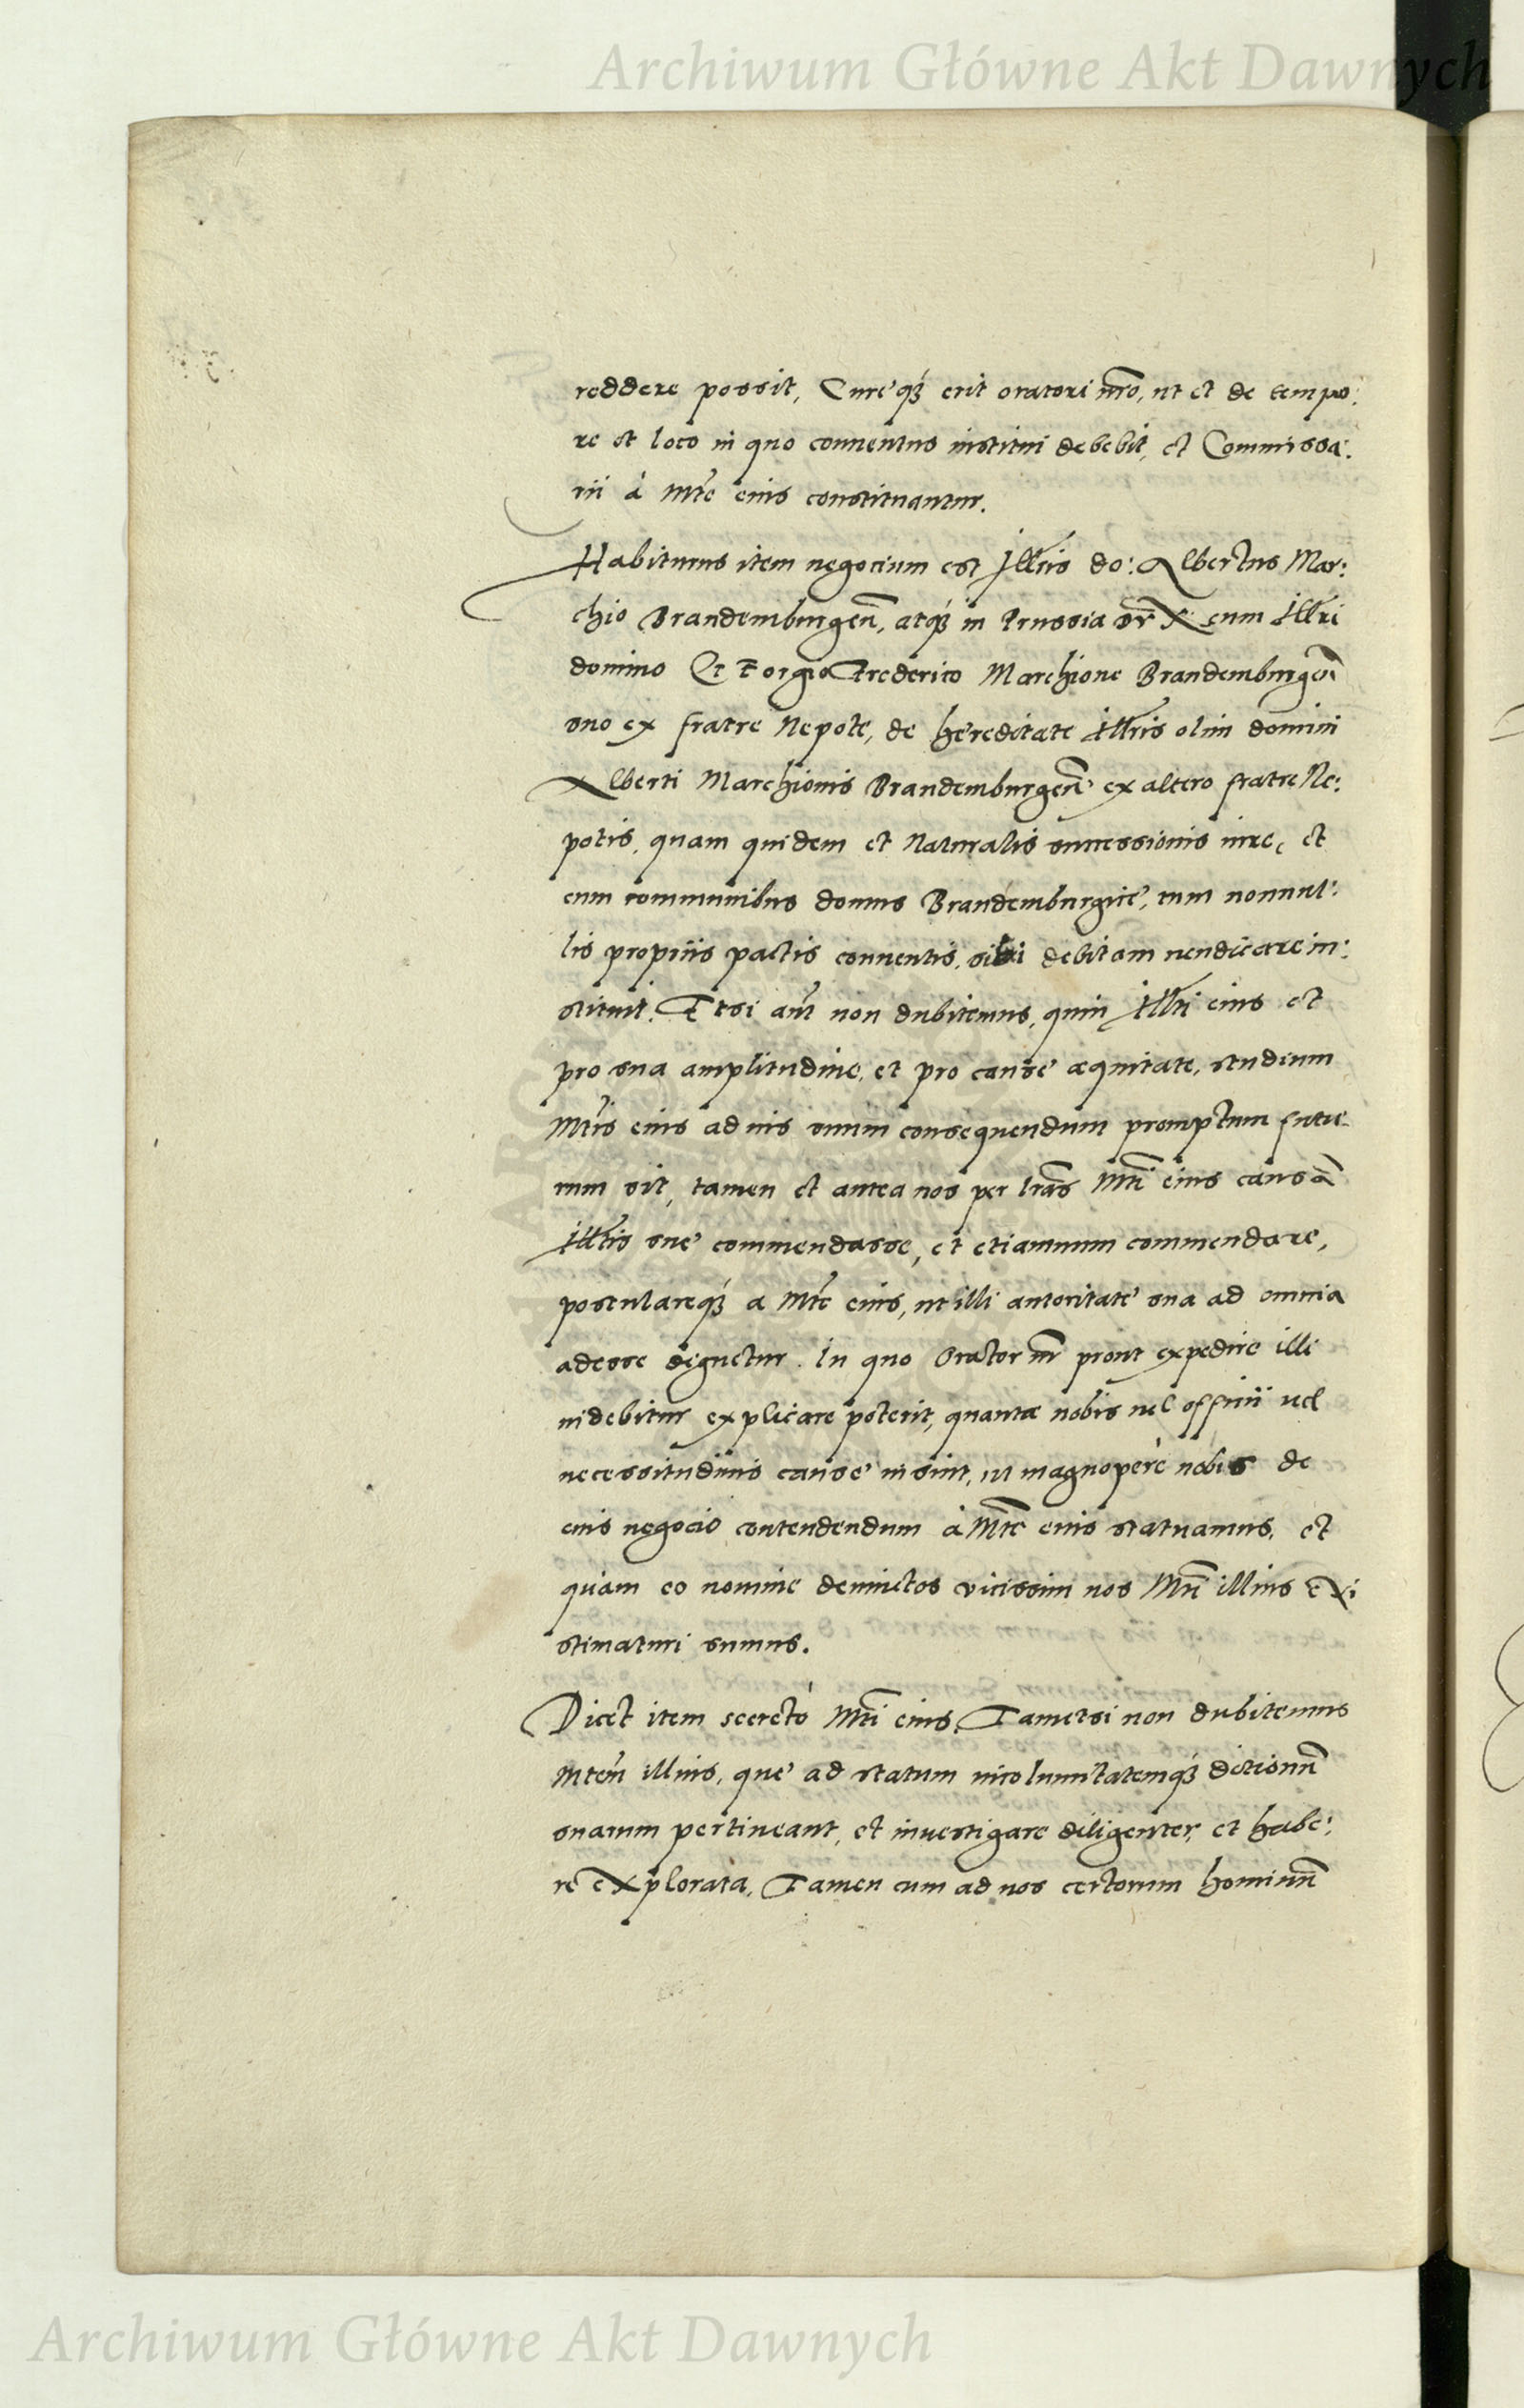 Archiwum Główne Akt Dawnych
reddere possit, Cureq́ꝫ erit oratori nr̃o, ut et de tempo:
re et loco in quo conuentus institui debebit, et Commissa:
rii à Mt̃e eius constituantur.
Habiturus item negocium est Illr̃is do: Albertus Mar:
chio Brandemburgeñ, atq́ꝫ in Prussia Dux cum Illr̃i
domino Georgio Frederico Marchione Brandemburgeñ
suo ex fratre Nepote, de hereditate Illr̃is olim domini
Alberti Marchionis Brandemburgeñ ex altero fratre Ne:
potis, quam quidem et Naturalis successionis iure, et
cum communibus domus Brandemburgice, tum nonnul:
lis propriis pactis conuentis, sibi debitam uendicare in:
stituit. Etsi aũt non dubitemus, quin Illt̃i eius et
pro sua amplitudine, et pro cause aequitate, studium
Mt̃is eius ad ius suum consequendum promptum futu
rum sit, tamen et antea nos per lr̃as Mt̃i eius causã
Illt̃is sue commendasse, et etiamnum commendare,
postulareq́ꝫ a Mt̃e eius, ut illi autoritate sua ad omnia
adesse dignetur. In quo Orator nr̃ prout expedire illi
uidebitur explicare poterit, quantae nobis uel officii uel
necessitudinis cause insint, ut magnopere nobis de
eius negocio contendendum à Mt̃e eius statuamus, et
quam eo nomine deuinctos vicissim nos Mt̃i illius exi
stimaturi sumus.
Dicet item secretò Mt̃i eius, Tametsi non dubitemus
Mtem̃ illius, que ad statum incolumitatemq́ꝫ ditionũ
suarum pertineant, et inuestigare diligenter, et habe:
re explorata, Tamen cum ad nos certorum hominũ
Archiwum Główne Akt Dawnych